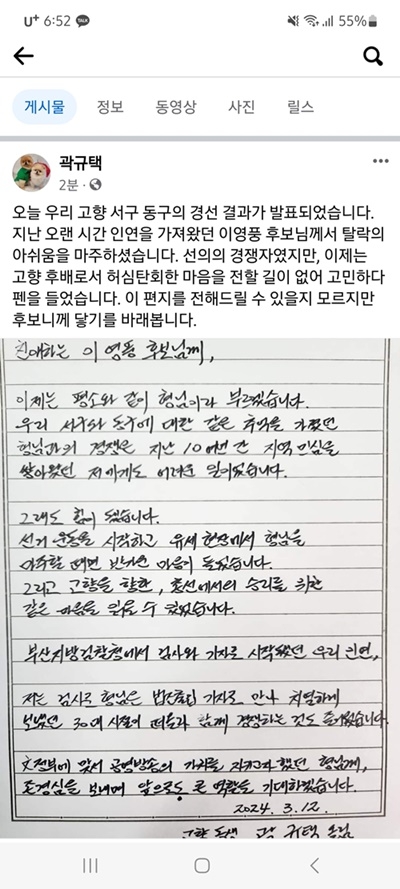 U+ 6:52 TALK 55%
게시물 정보 동영상 사진 릴스
곽규택
2분
오늘 우리 고향 서구 동구의 경선 결과가 발표되었습니다.
지난 오랜 시간 인연을 가져왔던 이영풍 후보님께서 탈락의
아쉬움을 마주하셨습니다. 선의의 경쟁자였지만, 이제는
고향 후배로서 허심탄회한 마음을 전할 길이 없어 고민하다
펜을 들었습니다. 이 편지를 전해드릴 수 있을지 모르지만
후보니께 닿기를 바래봅니다.
친애하는 이영풍 후보님께,
이제는 평소와 같이 형님이라 부르겠습니다.
우리 서구와 동구에 대한 같은 추억을 가졌던
형님과의 경쟁은 지난 10여년 간 지역 민심을
쌓아왔던 저에게도 어려운 일이었습니다.
그래도 힘이 됐습니다.
선거 운동을 시작하고 유세 현장에서 형님을
마주할 때면 반가운 마음이 들었습니다.
그리고 고향을 향한, 총선에서의 승리를 위한
같은 마음을 읽을 수 있었습니다.
부산지방검찰청에서 검사와 기자로 시작됐던 우리 인연,
저는 검사로 형님은 법조출입 기자로 만나 치열하게
보냈던 30대 시절이 떠올라 함께 경쟁하는 것도 즐거웠습니다.
文정부에 맞서 공영방송의 가치를 지키고자 했던 형님께,
존경심을 보내며 앞으로도 큰 역할을 기대하겠습니다.
2024. 3. 12.
고향 동생 곽규택 올림